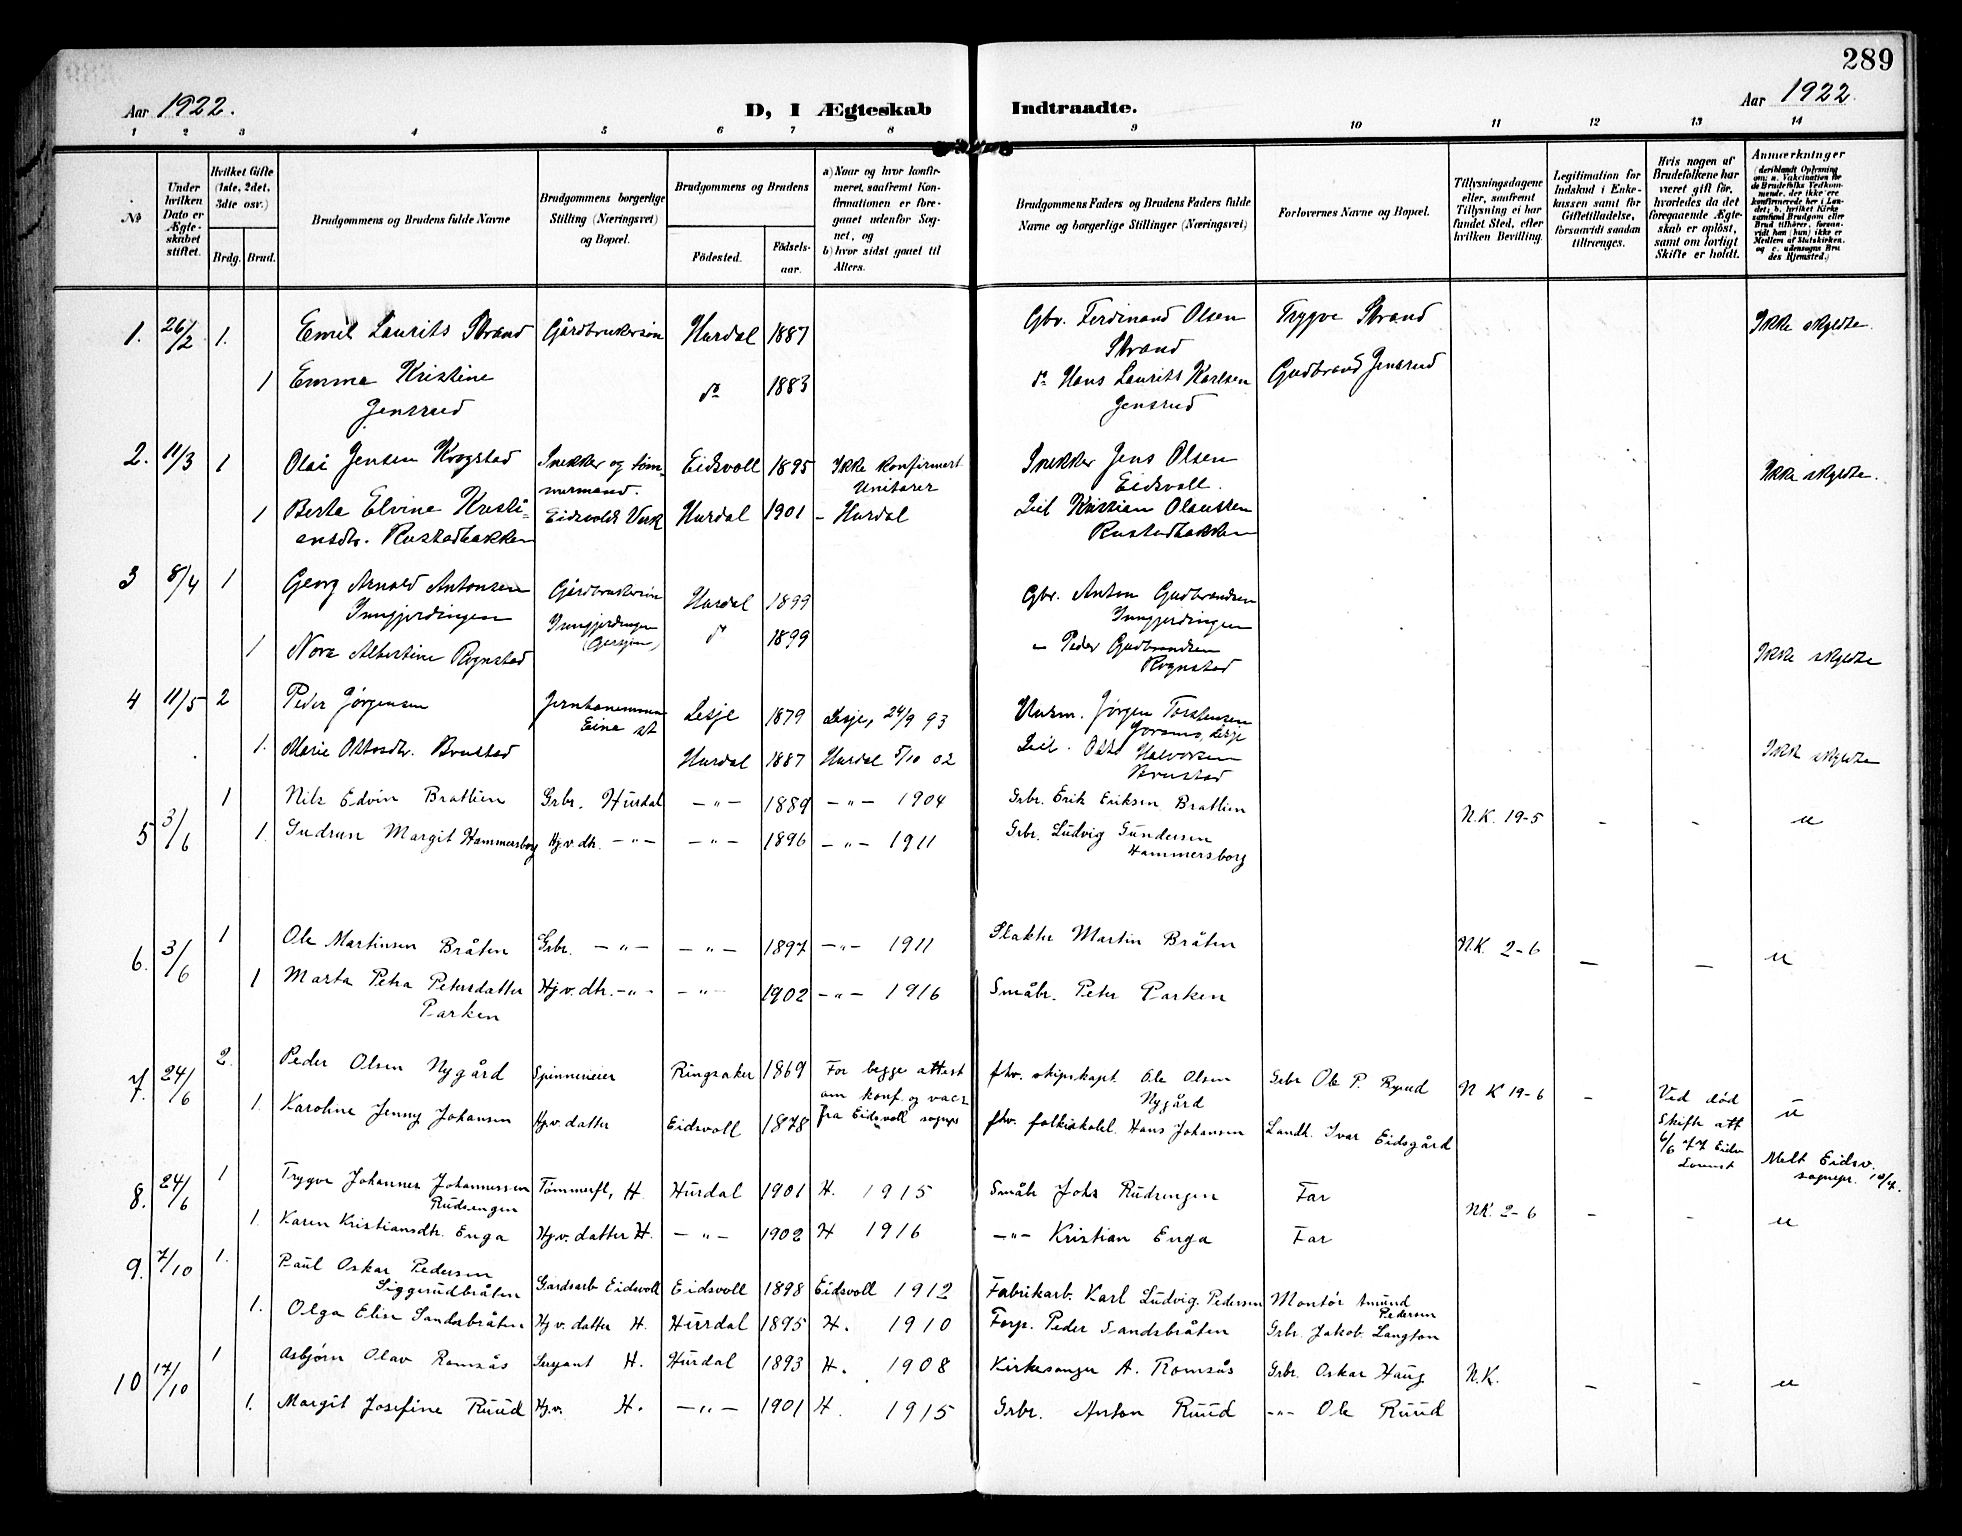 289
Aar 1922. D, I Ægteskab Indtraadte. Aar 1922.
1 2 3 4 5 6 7 8 9 10 11 12 13 14
№
Under hvilken Dato er Ægteskabet stiftet.
Hvilket Gifte (1ste, 2det, 3die osv.)
Brdg. Brud.
Brudgommens og Brudens fulde Navne
Brudgommens borgerlige Stilling (Næringsvei) og Bopæl.
Brudgommens og Brudens
Födested. Födselsaar.
a) Naar og hvor konfirmeret, saafremt Konfirmationen er foregaaet udenfor Sognet, og
b) hvor sidst gaaet til Alters.
Brudgommens Faders og Brudens Faders fulde Navne og borgerlige Stillinger (Næringsvei)
Forlovernes Navne og Bopæl.
Tillysningsdagene eller, saafremt Tillysning ei har fundet Sted, efter hvilken Bevilling.
Legitimation for Indskud i Enkekassen samt for Giftetilladelse, forsaavidt saadan tiltrænges.
Hvis nogen af Brudefolkene har været gift før, hvorledes da det foregaaende Ægteskab er oplöst, samt om lovligt Skifte er holdt.
Anmærkninger
(deriblandt Oplysning om: a. Vakcination for de Brudefolks Vedkommende, der ikke ere konfirmerede her i Landet; b. hvilket Kirkesamfund Brudgom eller Brud tilhører, forsaavidt han (hun) ikke er Medlem af Statskirken, og c. udensogns Brudes Hjemsted.)
1. 26/2 1. Emil Laurits Strand Gårdbrukersøn Hurdal 1887 Gbr. Ferdinand Olsen Trygve Strand Ikke skyldte.
Strand
1 Emma Kristine do 1883 do Hans Laurits Karlsen Gudbrand Jensrud
Jensrud Jensrud
2. 11/3 1 Olai Jensen Krogstad Snekker og tøm- Eidsvoll 1895 Ikke konfirmert Snekker Jens Olsen Ikke skyldte.
mermand. Unitarer Eidsvoll.
1 Berta Elvine Kristi- Eidsvold Verk Hurdal 1901 – Hurdal Kristian Olaussen
ansdtr. Rustadbakken Rustadbakken
3 8/4 1 Georg Arnold Antonsen Gårdbrukersøn Hurdal 1899 Gbr. Anton Gudbrandsen
1 Nora Albertine Rognstad do 1899 – Peder Gudbrandsen Ikke skyldte
Rognstad
4 11/5 2 Peder Jørgensen Eina st Lesje 1879 Lesje, 24/9 93 Husm. Jørgen Torstensen
1. Marie Ottosdtr. Brustad Hurdal 1887 Hurdal 5/10 02 Otto Halvorsen Ikke skyldte
Brustad
5 3/6 1 Nils Edvin Bratlien Grbr. Hurdal –"– 1889 –"– 1904 Grbr. Erik Eriksen Bratlien N.K. 19-5 – – u
1. Gudrun Margit Hammersborg Hj.v.dtr. –"– –"– 1896 –"– 1911 Grbr. Ludvig Gundersen
Hammersborg
6. 3/6 1 Ole Martinsen Bråten Grbr. –"– –"– 1897 –"– 1911 Slakter Martin Bråten N.K 2-6 – – u
1 Marta Petra Petersdatter Hj.v.dtr. –"– –"– 1902 –"– 1916 Småbr. Peter Parken
Parken
7. 24/6 2. Peder Olsen Nygård Spinnerieier Ringsaker 1869 For begge attest fhv. skipskapt. Ole Olsen Grbr Ole P. Ryud N K 19-6 – Ved død u
om konf. og vacc Nygård Skifte att
1. Karoline Jenny Johansen Hj.v. datter Eidsvoll 1878 fra Eidsvoll sognepr fhv. folkeskolel. Hans Johansen Landh. Ivar Eidsgård
Melt Eidsv. sognepr. 10/7.
8. 24/6 1 Trygve Johannes Johannessen Tømmerfl, H. Hurdal 1901 H. 1915 Småbr Johs Rudsengen Far NK. 2-6 – – u
Rudsengen
1. Karen Kristiansdtr. Enga Hj.v. datter H. –"– 1902 H 1916 –"– Kristian Enga Far
9. 7/10 1. Paul Oskar Pedersen
Siggerudbråten Gårdsarb Eidsvoll Eidsvoll 1898 Eidsvoll 1912 Fabrikarb. Karl Ludvig. Pedersen Montør Amund
Pedersen
1. Olga Elise Sandsbråten Hj v. datter H. Hurdal 1895 H. 1910 Forp. Peder Sandsbråten Grbr. Jakob Langton
10 17/10 1 Asbjørn Olav Ramsås Sersjant H. Hurdal 1893 H. 1908 Kirkesanger A. Ramsås Grbr. Oskar Haug N.K. – – u
1. Margit Josefine Ruud Hj.v. H. –"– 1901 H. 1915 Grbr. Anton Ruud –"– Ole Ruud